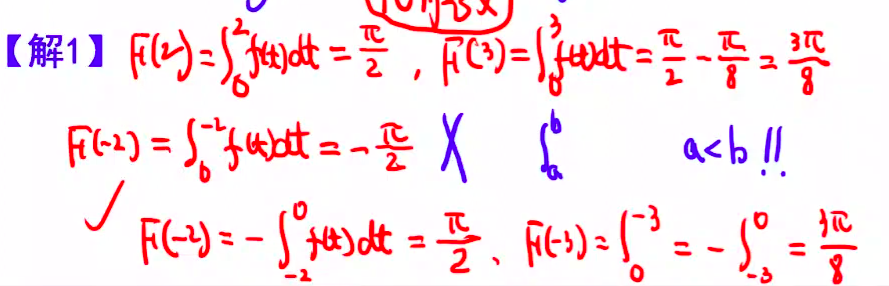 【解1】 F(2)=∫₀² f(t)dt = π/2 , F(3)=∫₀³ f(t)dt = π/2 - π/8 = 3π/8
F(-2) = ∫₀⁻² f(t)dt = -π/2 X ∫ₐᵇ a<b !!
✓ F(-2) = -∫₋₂⁰ f(t)dt = π/2 、 F(-3) = ∫₀⁻³ = -∫₋₃⁰ = 3π/8